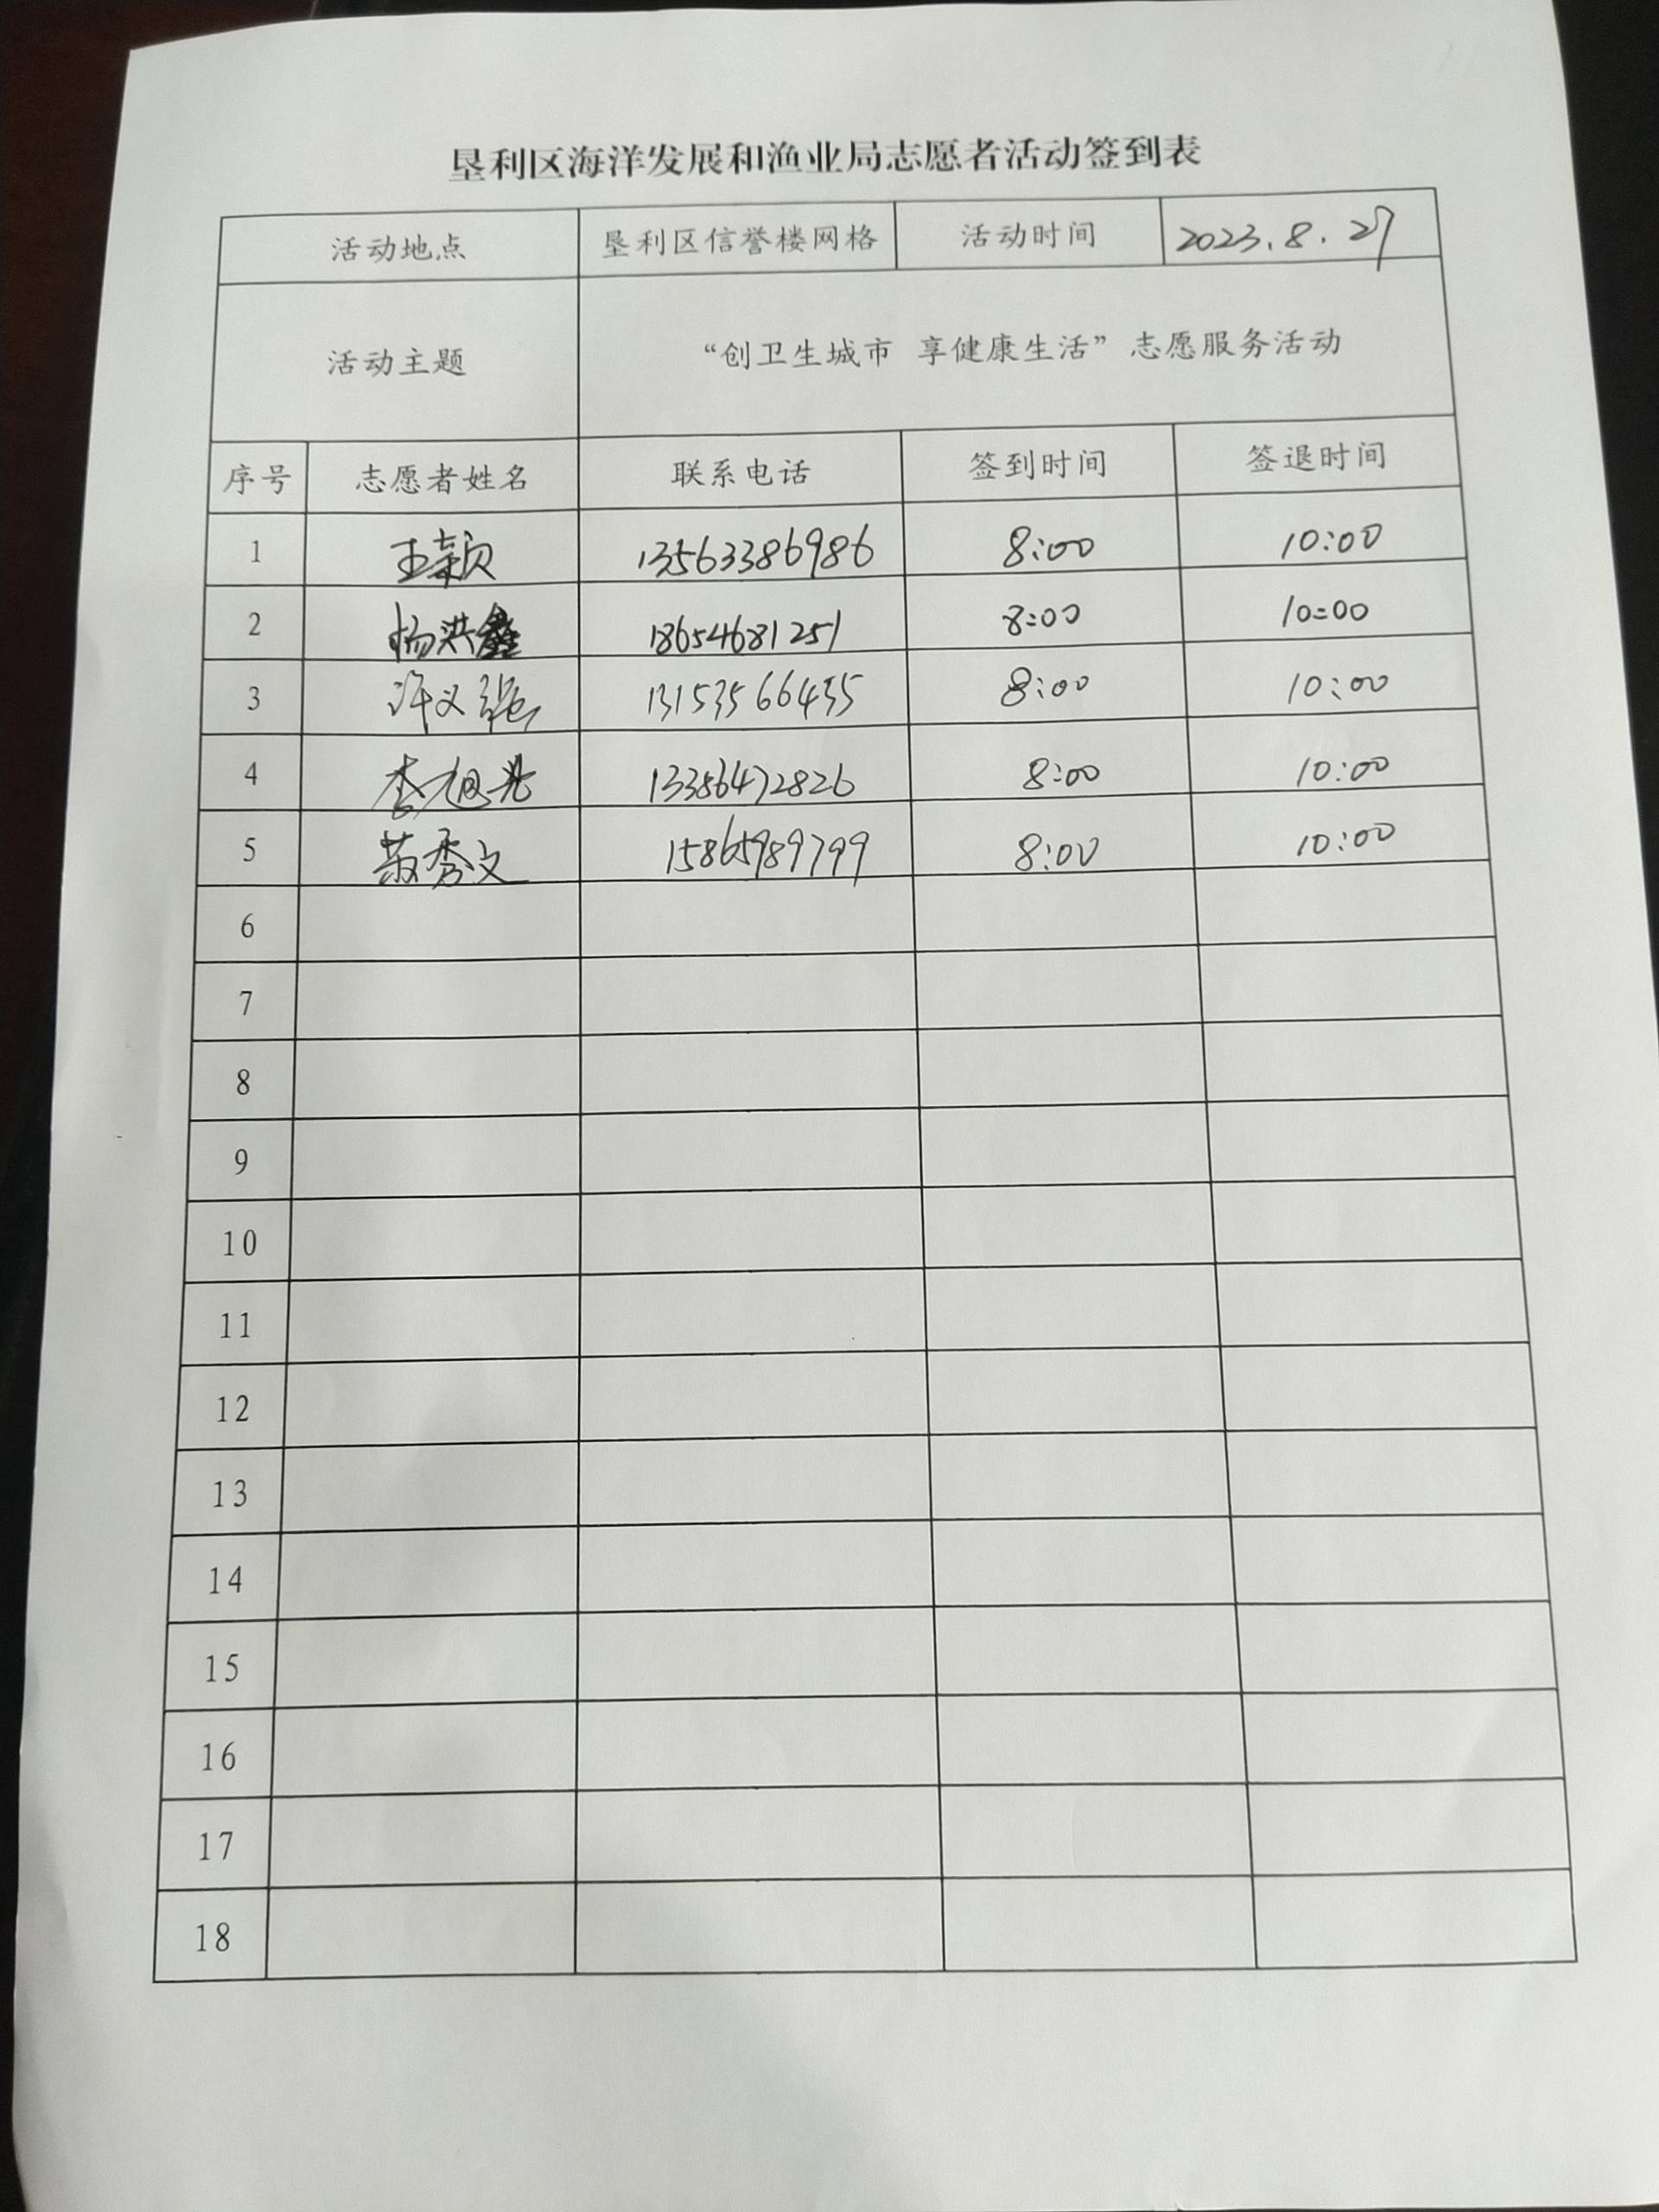 垦利区海洋发展和渔业局志愿者活动签到表
活动地点 垦利区信誉楼网格 活动时间 2023.8.27
活动主题 “创卫生城市 享健康生活”志愿服务活动
序号 志愿者姓名 联系电话 签到时间 签退时间
1 王颖 13563386986 8:00 10:00
2 杨洪鑫 18654681251 8:00 10:00
3 许义强 13153566435 8:00 10:00
4 李旭光 13356472826 8:00 10:00
5 秀文 15865989799 8:00 10:00
6
7
8
9
10
11
12
13
14
15
16
17
18